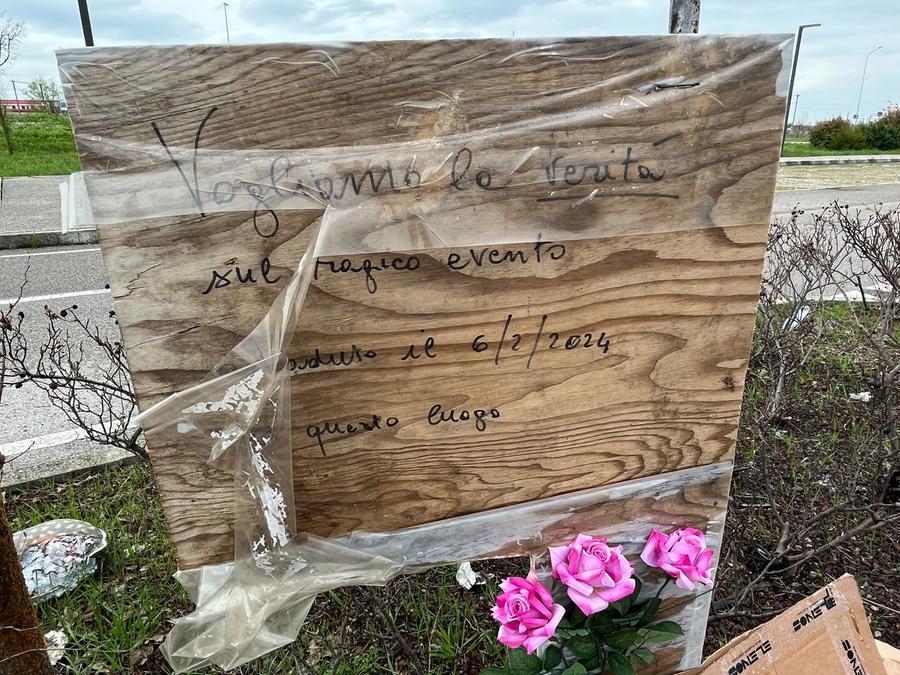 Vogliamo la verità
sul tragico evento
il 6/2/2024
questo luogo
ELENOS
ELENOS